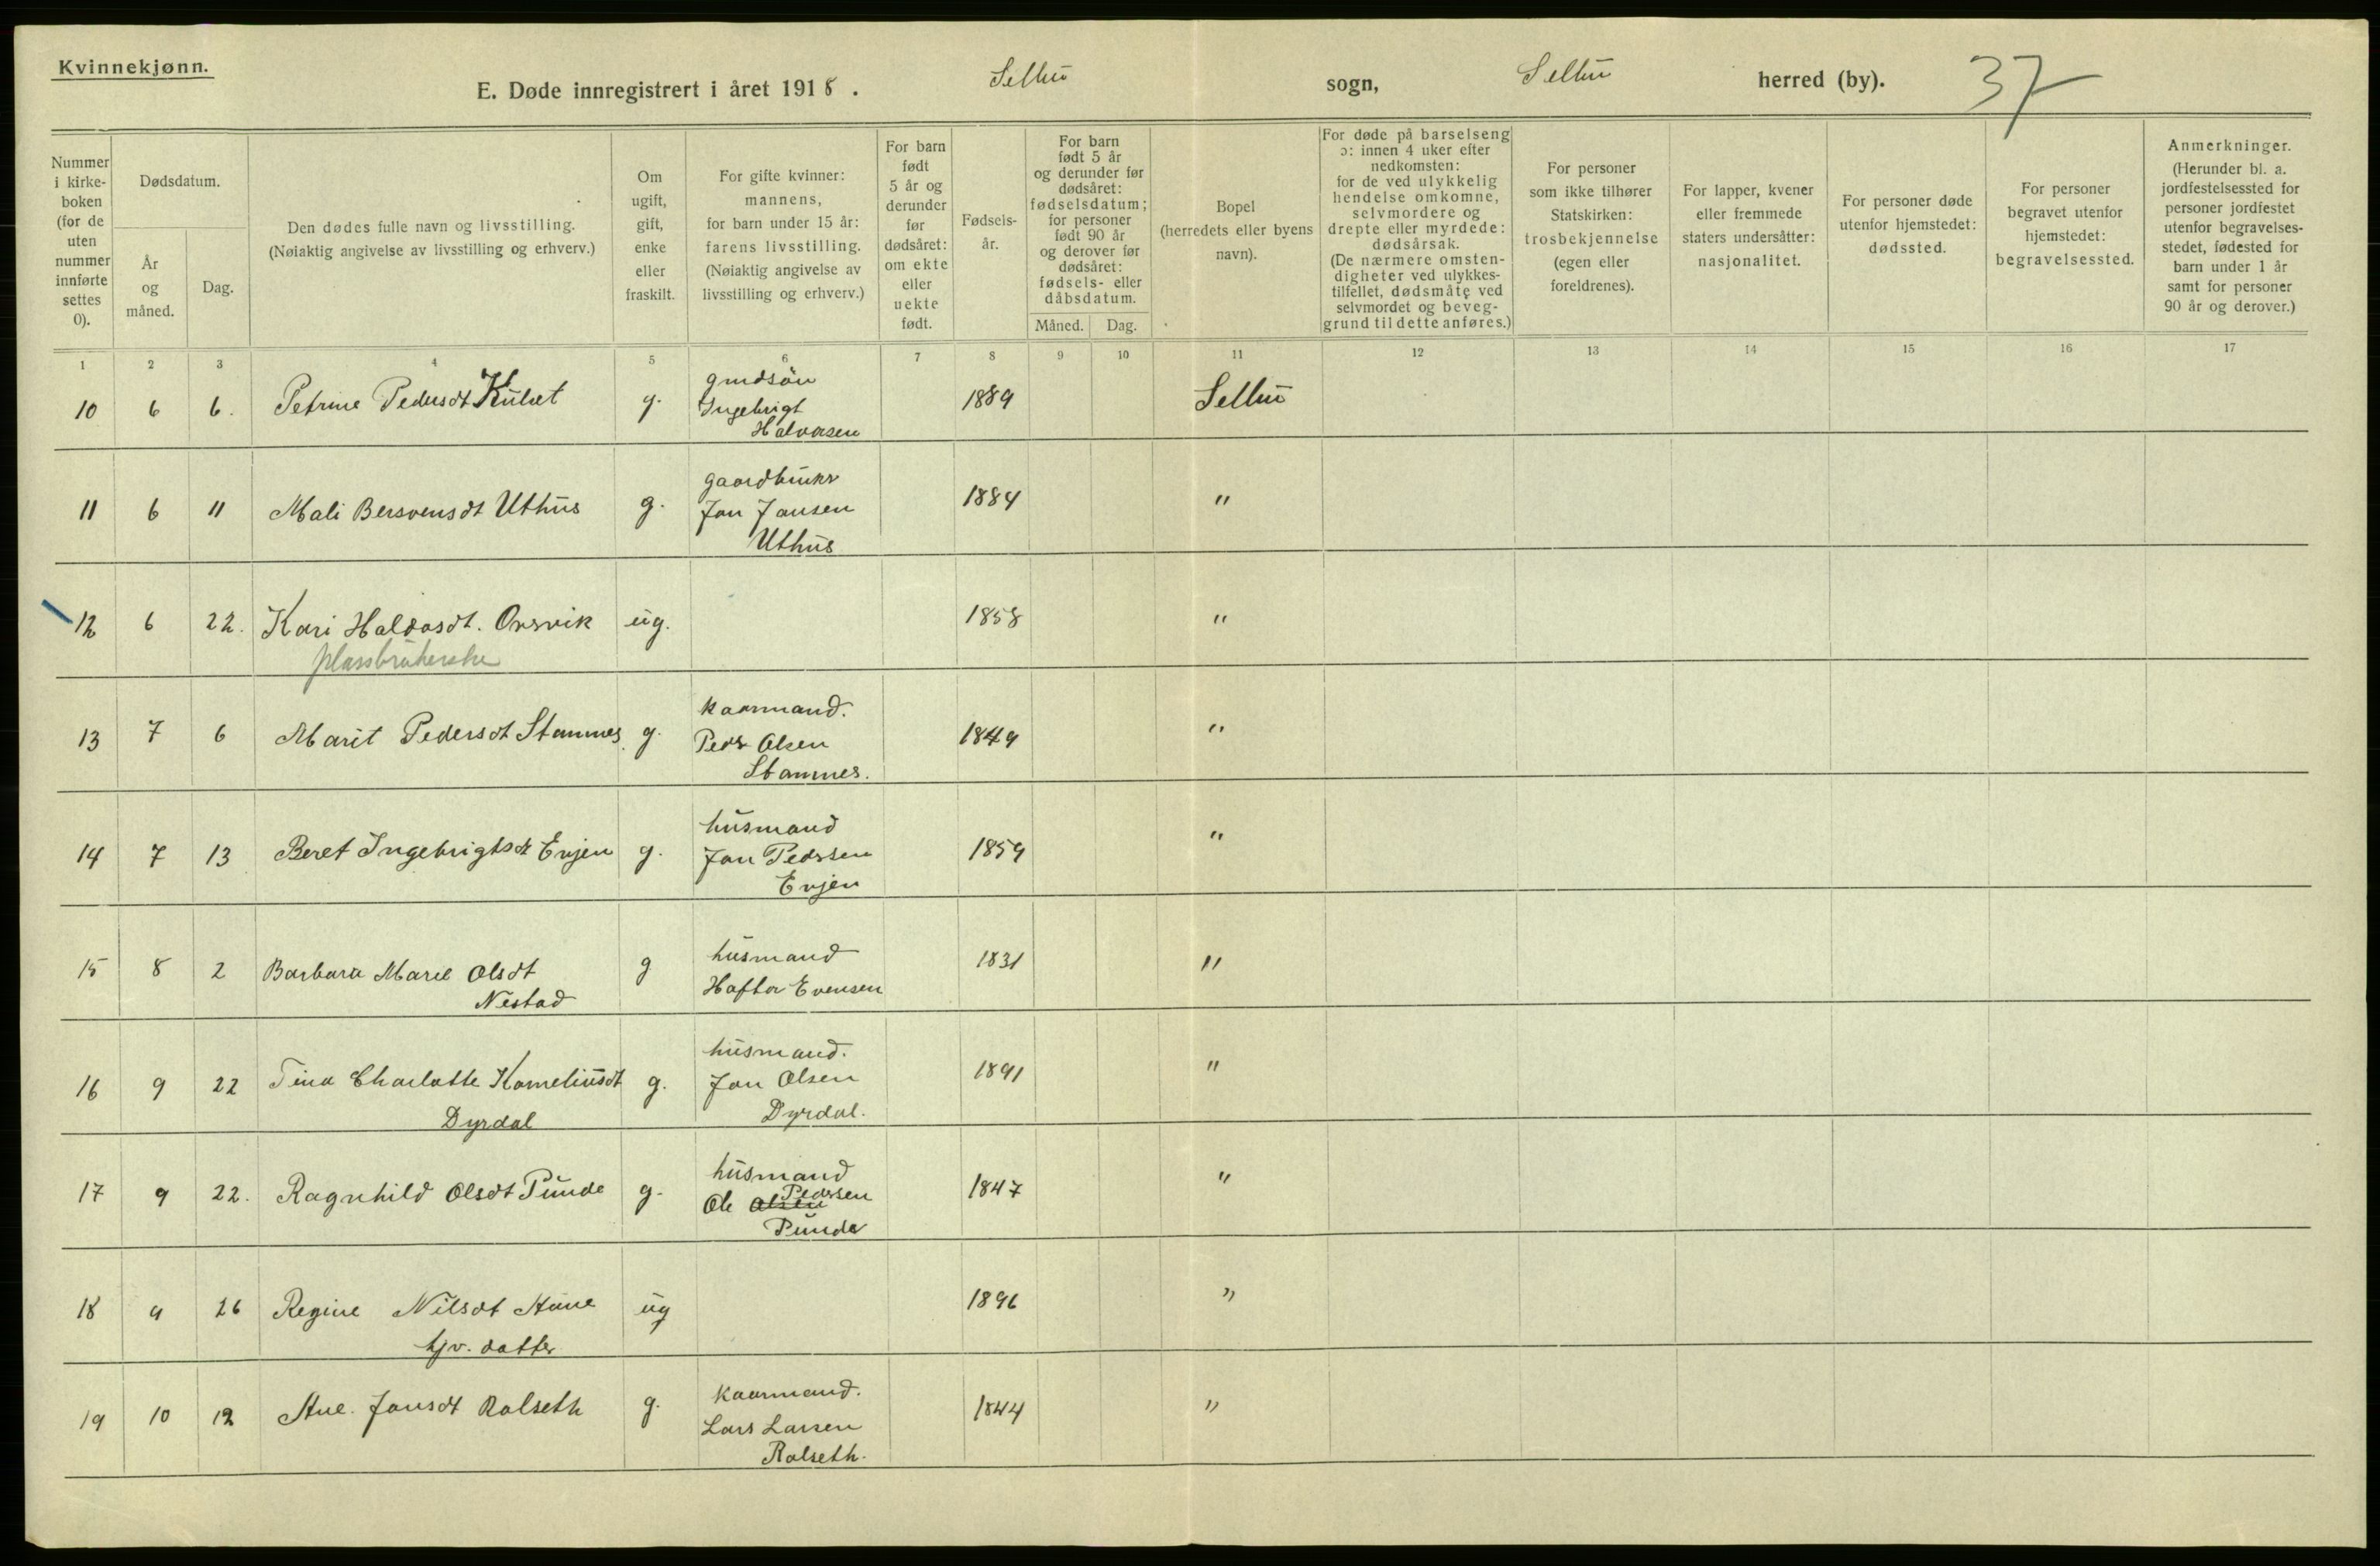 Kvinnekjønn.
E. Døde innregistrert i året 1918. Selbu sogn, Selbu herred (by). 37
Nummer i kirkeboken (for de uten nummer innførte settes 0).
Dødsdatum.
År og måned.
Dag.
Den dødes fulle navn og livsstilling. (Nøiaktig angivelse av livsstilling og erhverv.)
Om ugift, gift, enke eller fraskilt.
For gifte kvinner: mannens, for barn under 15 år: farens livsstilling. (Nøiaktig angivelse av livsstilling og erhverv.)
For barn født 5 år og derunder før dødsåret: om ekte eller uekte født.
Fødselsår.
For barn født 5 år og derunder før dødsåret: fødselsdatum; for personer født 90 år og derover før dødsåret: fødsels- eller dåbsdatum.
Måned. Dag.
Bopel (herredets eller byens navn).
For døde på barselseng ɔ: innen 4 uker efter nedkomsten: for de ved ulykkelig hendelse omkomne, selvmordere og drepte eller myrdede: dødsårsak. (De nærmere omstendigheter ved ulykkestilfellet, dødsmåte ved selvmordet og beveggrund til dette anføres.)
For personer som ikke tilhører Statskirken: trosbekjennelse (egen eller foreldrenes).
For lapper, kvener eller fremmede staters undersåtter: nasjonalitet.
For personer døde utenfor hjemstedet: dødssted.
For personer begravet utenfor hjemstedet: begravelsessted.
Anmerkninger. (Herunder bl. a. jordfestelsessted for personer jordfestet utenfor begravelsesstedet, fødested for barn under 1 år samt for personer 90 år og derover.)
1 2 3 4 5 6 7 8 9 10 11 12 13 14 15 16 17
10 6 6. Petrine Pedersdt Kulset g. grdsøn Ingebrigt Halvorsen 1889 Selbu
11 6 11 Mali Bersvensdt Uthus g. gaardbruker Jon Jonsen Uthus 1884 "
12 6 22. Kari Haldosdt. Orsvik ug. 1858 "
plassbrukerske
13 7 6 Marit Pedersdt Stamnes g. kaarmand. Peder Olsen Stamnes. 1849 "
14 7 13 Beret Ingebrigtsdt Evjen g. husmand Jon Pedersen Evjen 1859 "
15 8 2 Barbara Marie Olsdt Nestad g husmand Haftor Evensen 1831 "
16 9 22 Tina Charlotte Korneliusdt Dyrdal g. husmand. Jon Olsen Dyrdal. 1891 "
17 9 22. Ragnhild Olsdt Punde g. husmand Ole Olsen Pedersen Punde 1847 "
18 9 26 Regine Nilsdt Aune ug 1896 "
hjv. datter
19 10 12 Ane. Jonsdt Rolseth g. kaarmand. Lars Larsen Rolseth. 1844 "